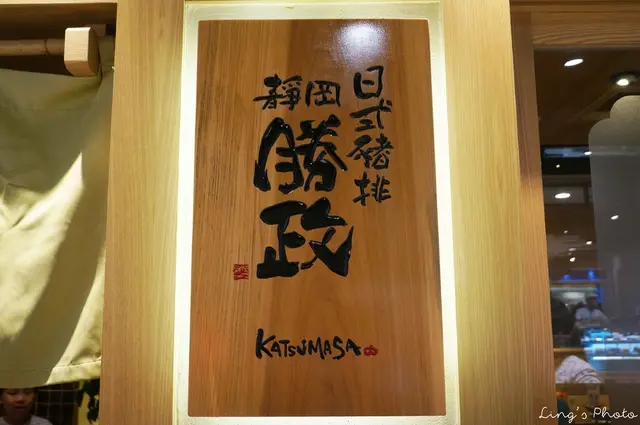 日式豬排
靜岡
勝政
KATSUMASA
Ling's Photo